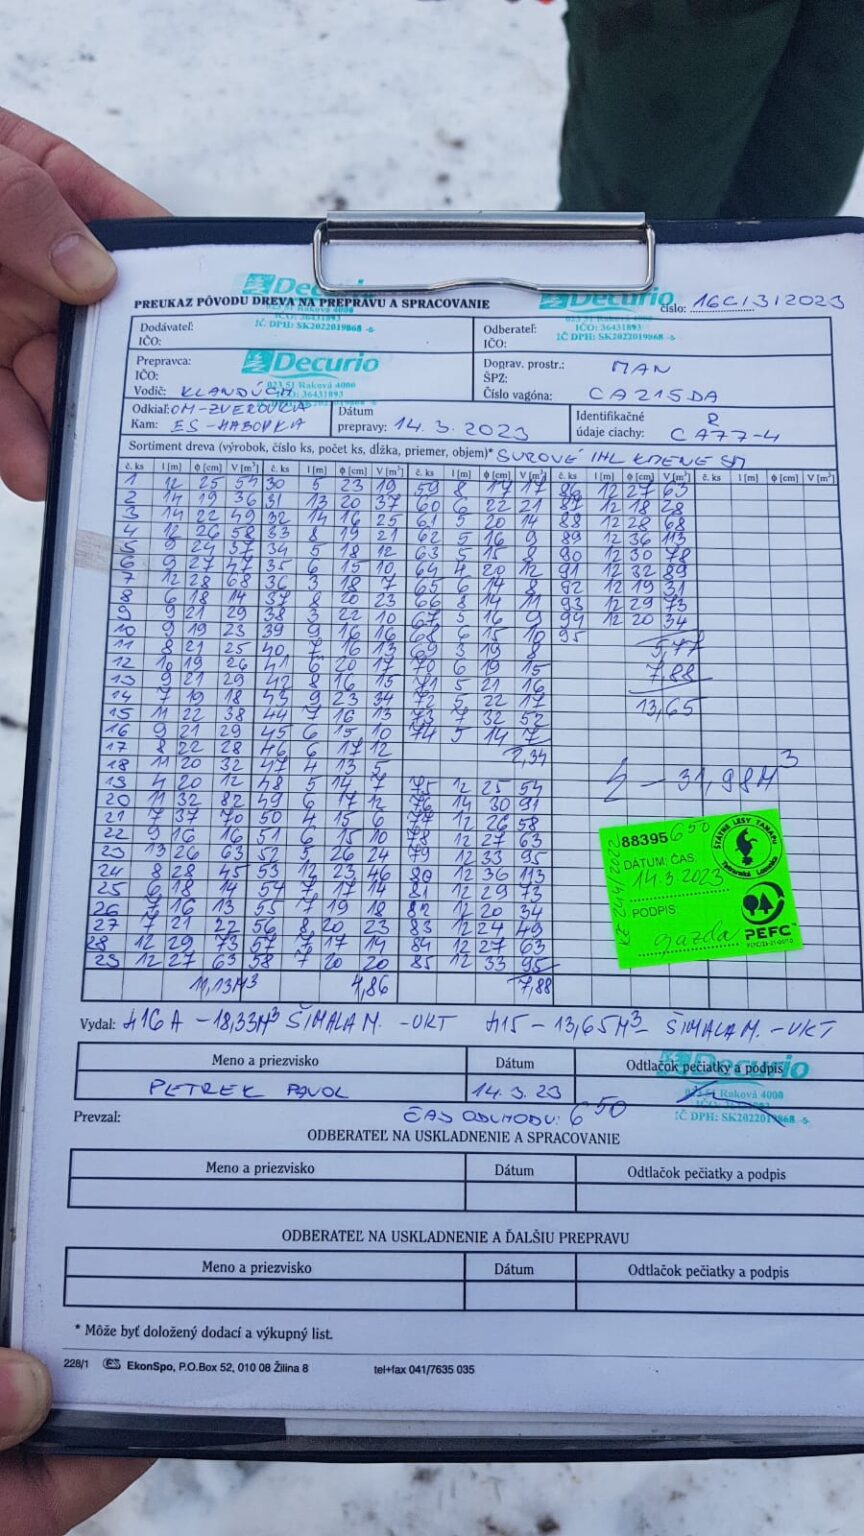 Decurio
PREUKAZ PÔVODU DREVA NA PREPRAVU A SPRACOVANIE
Decurio
číslo: 16C/3/2023
023 51 Raková 4000
IČO: 36431893
IČ DPH: SK2022019868
IČO: 36431893
IČ DPH: SK2022019868
Dodávateľ:
IČO:
Odberateľ:
IČO:
Prepravca:
IČO:
Vodič: KLANDÚCH
Decurio
023 51 Raková 4000
IČO: 36431893
Doprav. prostr.: MAN
ŠPZ:
Číslo vagóna: CA215DA
Odkiaľ: OM-ZVEROVKA
Kam: ES-HABOVKA
Dátum
prepravy: 14.3.2023
Identifikačné
údaje ciachy: R
CA77-4
Sortiment dreva (výrobok, číslo ks, počet ks, dĺžka, priemer, objem)* SUROVÉ IHL KMENE SM
č. ks l [m] φ [cm] V [m³] č. ks l [m] φ [cm] V [m³] č. ks l [m] φ [cm] V [m³] č. ks l [m] φ [cm] V [m³] č. ks l [m] φ [cm] V [m³]
1 12 25 54 30 5 23 19 59 8 17 17 86 12 27 63
2 14 19 36 31 13 20 37 60 6 22 21 87 12 18 28
3 14 22 49 32 14 16 25 61 5 20 14 88 12 28 68
4 12 26 58 33 8 19 21 62 5 16 9 89 12 36 113
5 9 24 37 34 5 18 12 63 5 15 8 90 12 30 78
6 9 27 47 35 6 15 10 64 4 20 12 91 12 32 89
7 12 28 68 36 3 18 7 65 6 14 8 92 12 19 31
8 6 18 14 37 8 20 23 66 8 14 11 93 12 29 73
9 9 21 29 38 3 22 10 67 5 16 9 94 12 20 34
10 9 19 23 39 9 16 16 68 6 15 10 95
11 8 21 25 40 7 16 13 69 3 19 8 5,77
12 10 19 26 41 6 20 17 70 6 19 15 7,88
13 9 21 29 42 8 16 15 71 5 21 16
14 7 19 18 43 9 23 34 72 5 22 17 13,65
15 11 22 38 44 7 16 13 73 7 32 52
16 9 21 29 45 6 15 10 74 5 14 7
17 8 22 28 46 6 17 12 2,34
18 11 20 32 47 4 13 5
19 4 20 12 48 5 14 7 75 12 25 54
20 11 32 82 49 6 17 12 76 14 30 91
21 7 37 70 50 4 15 6 77 12 26 58
22 9 16 16 51 6 15 10 78 12 27 63
23 13 26 63 52 5 26 24 79 12 33 95
24 8 28 45 53 12 23 46 80 12 36 113
25 6 18 14 54 7 17 14 81 12 29 73
26 7 16 13 55 7 19 18 82 12 20 34
27 7 21 22 56 8 20 23 83 12 24 49
28 12 29 73 57 7 17 14 84 12 27 63
29 12 27 63 58 7 20 20 85 12 33 95
11,13M³ 4,86 7,88
31,98M³
88395 650
DÁTUM: ČAS
14.3.2023
PODPIS
gazda
ŠTÁTNE LESY TANAPU
Tatranská Lomnica
PEFC™
Vydal: 416A - 18,33M³ ŠIMALA M. - VKT 415 - 13,65M³ - ŠIMALA M. - VKT
Meno a priezvisko Dátum Odtlačok pečiatky a podpis
PETREK PAVOL 14.3.23
Decurio
023 51 Raková 4000
IČ DPH: SK2022019868
Prevzal: ČAS ODCHODU: 6 50
ODBERATEĽ NA USKLADNENIE A SPRACOVANIE
Meno a priezvisko Dátum Odtlačok pečiatky a podpis
ODBERATEĽ NA USKLADNENIE A ĎALŠIU PREPRAVU
Meno a priezvisko Dátum Odtlačok pečiatky a podpis
* Môže byť doložený dodací a výkupný list.
228/1 ES EkonSpo, P.O.Box 52, 010 08 Žilina 8 tel+fax 041/7635 035